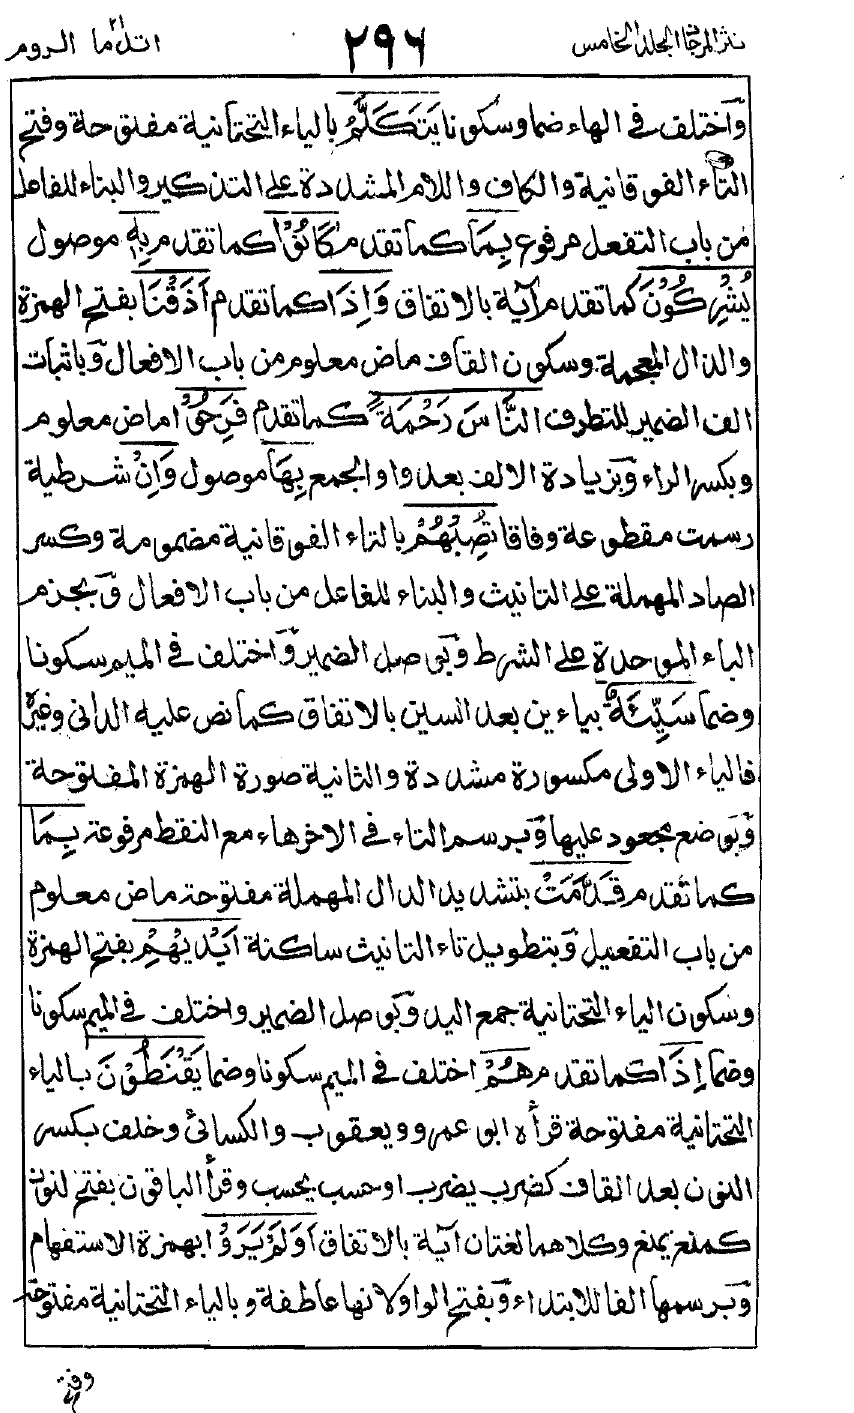 نثر المرجان المجلد الخامس ٢٩٦ اتل ما ٢١ الروم
وَاختلف فى الهاء ضما وسكونا يَتَكَلَّمُ بالياء التحتانية مفتوحة وفتح
التاء الفوقانية والكاف واللام المشددة على التذكير والبناء للفاعل
من باب التفعل مرفوع بِمَا كما تقدم كَانُوْا كما تقدم بِهٖ موصول
يُشْرِكُوْنَ كما تقدم آية بالاتفاق وَاِذَا كما تقدم اَذَقْنَا بفتح الهمزة
والذال المعجمة وسكون القاف ماض معلوم من باب الافعال وَباثبات
الف الضمير للتطرف النَّاسَ رَحْمَةً كما تقدم فَرِحُوْا ماض معلوم
وبكسر الراء وَبزيادة الالف بعد واو الجمع بِهَا موصول وَاِنْ شرطية
رسمت مقطوعة وفاقا تُصِبْهُمْ بالتاء الفوقانية مضمومة وكسر
الصاد المهملة على التانيث والبناء للفاعل من باب الافعال وَبجزم
الباء الموحدة على الشرط وَبوصل الضمير وَاختلف فى الميم سكونا
وضما سَيِّئَةٌ بياءين بعد السين بالاتفاق كما نص عليه الدانى وغيره
فالياء الاولى مكسورة مشددة والثانية صورة الهمزة المفتوحة
وَبوضع مجعود عليها وَبرسم التاء فى الاخر هاء مع النقط مرفوعة بِمَا
كما تقدم قَدَّمَتْ بتشديد الدال المهملة مفتوحة ماض معلوم
من باب التفعيل وَبتطويل تاء التانيث ساكنة اَيْدِيْهِمْ بفتح الهمزة
وسكون الياء التحتانية جمع اليد وَبوصل الضمير واختلف فى الميم سكونا
وضما اِذَا كما تقدم هُمْ اختلف فى الميم سكونا وضما يَقْنَطُوْنَ بالياء
التحتانية مفتوحة قرأه ابو عمرو ويعقوب والكسائى وخلف بكسر
النون بعد القاف كضرب يضرب او حسب يحسب وقرأ الباقون بفتح النون
كمنع يمنع وكلاهما لغتان آية بالاتفاق اَوَلَمْ يَرَوْا بهمزة الاستفهام
وَبرسمها الفا للابتداء وَبفتح الواو لانها عاطفة وبالياء التحتانية مفتوحة
وفتح